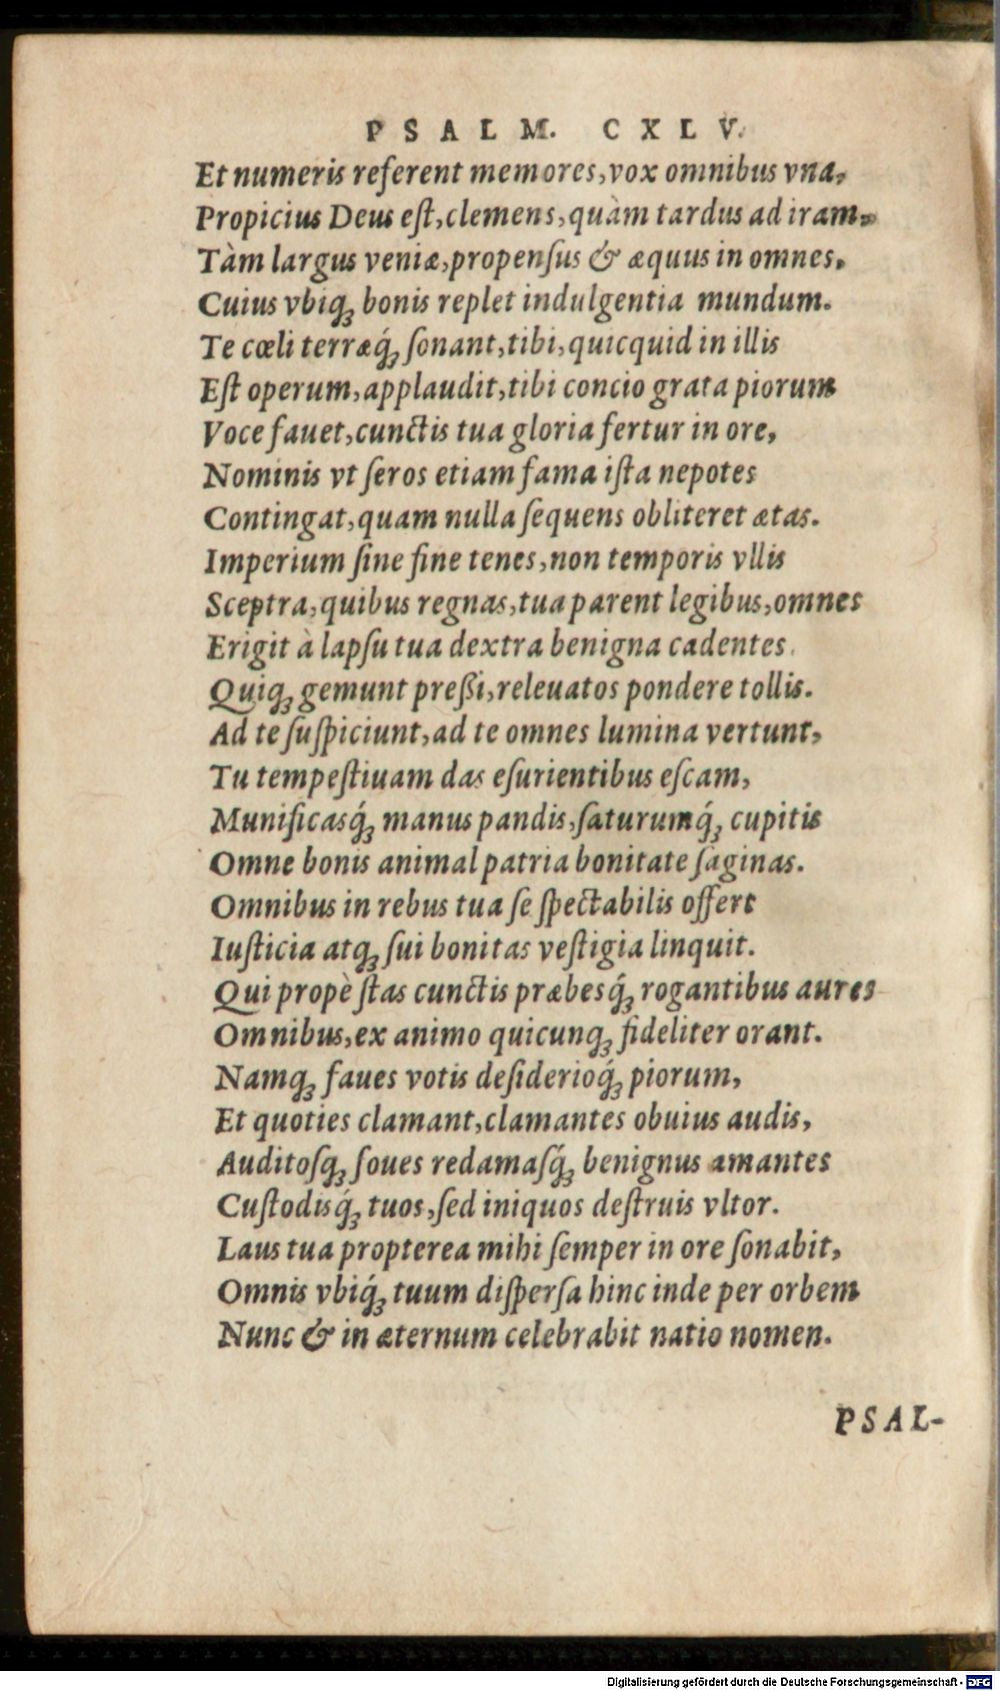 PSALM. CXLV.
Et numeris referent memores, vox omnibus vna,
Propicius Deus eſt, clemens, quàm tardus ad iram,
Tàm largus veniæ, propenſus & æquus in omnes,
Cuius vbiqꝫ bonis replet indulgentia mundum.
Te cœli terræq́ꝫ ſonant, tibi, quicquid in illis
Eſt operum, applaudit, tibi concio grata piorum
Voce fauet, cunctis tua gloria fertur in ore,
Nominis vt ſeros etiam fama iſta nepotes
Contingat, quam nulla ſequens obliteret ætas.
Imperium ſine fine tenes, non temporis vllis
Sceptra, quibus regnas, tua parent legibus, omnes
Erigit à lapſu tua dextra benigna cadentes.
Quiqꝫ gemunt preßi, releuatos pondere tollis.
Ad te ſuſpiciunt, ad te omnes lumina vertunt,
Tu tempeſtiuam das eſurientibus eſcam,
Munificasq́ꝫ manus pandis, ſaturumq́ꝫ cupitis
Omne bonis animal patria bonitate ſaginas.
Omnibus in rebus tua ſe ſpectabilis offert
Iuſticia atqꝫ ſui bonitas veſtigia linquit.
Qui propè ſtas cunctis præbesq́ꝫ rogantibus aures
Omnibus, ex animo quicunqꝫ fideliter orant.
Namqꝫ faues votis deſiderioq́ꝫ piorum,
Et quoties clamant, clamantes obuius audis,
Auditoſqꝫ foues redamaſq́ꝫ benignus amantes
Cuſtodisq́ꝫ tuos, ſed iniquos deſtruis vltor.
Laus tua propterea mihi ſemper in ore ſonabit,
Omnis vbiq́ꝫ tuum diſperſa hinc inde per orbem
Nunc & in æternum celebrabit natio nomen.
PSAL-
Digitalisierung gefördert durch die Deutsche Forschungsgemeinschaft - DFG